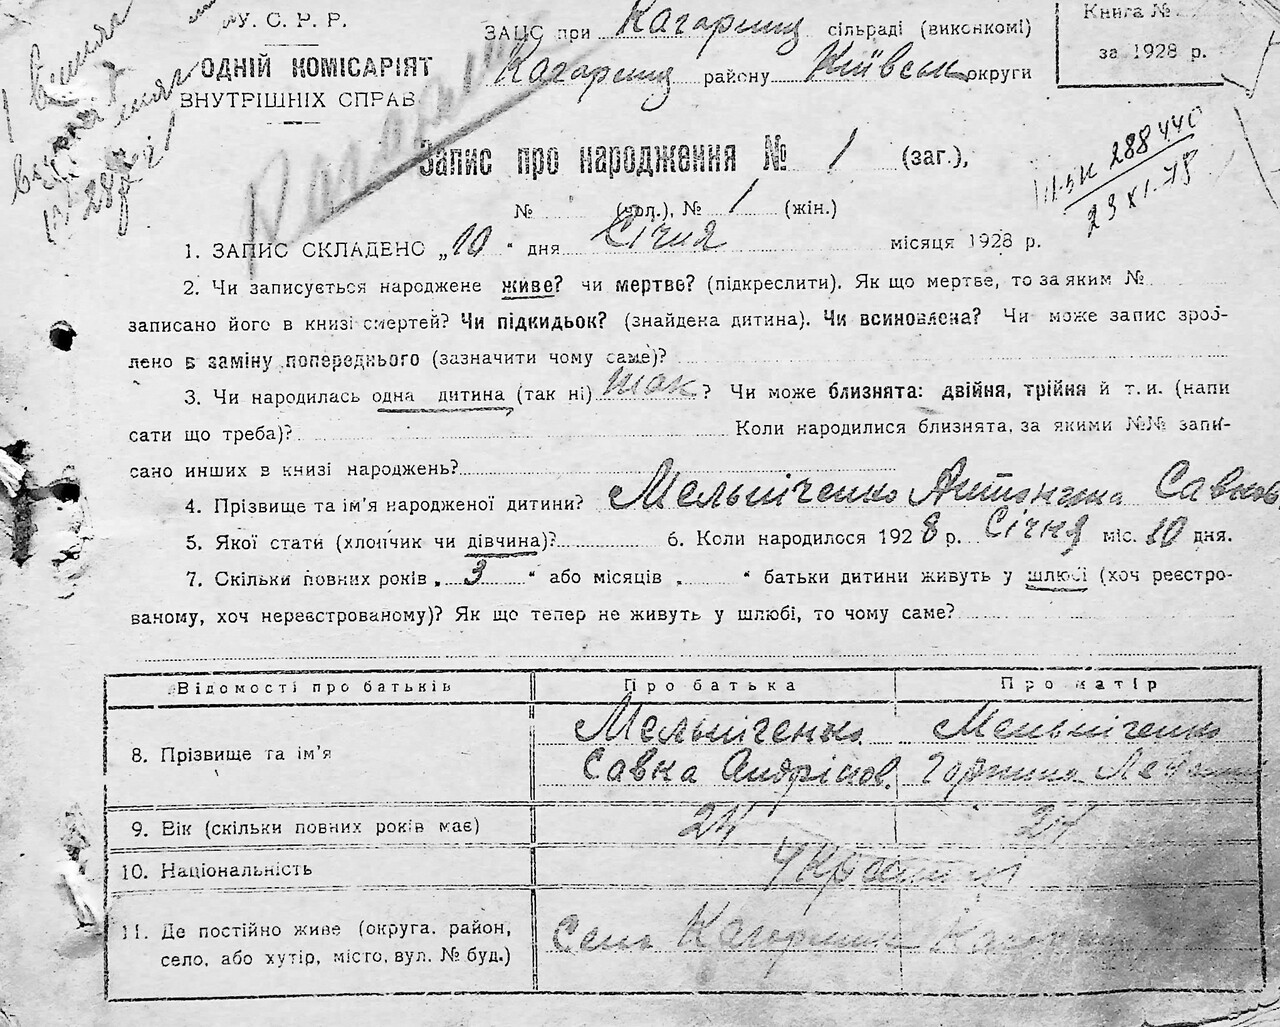 У. С. Р. Р.
ОДНІЙ КОМІСАРІЯТ
ВНУТРІШНІХ СПРАВ
ЗАЦС при Кагарлиц сільраді (виконкомі)
Кагарлиц району Київськ округи
Книга №
за 1928 р.
288440
23 XI. 78
Запис про народження № 1 (заг.),
№ (чол.), № 1 (жін.)
1. ЗАПИС СКЛАДЕНО „10 “ дня Січня місяця 1928 р.
2. Чи записується народжене живе? чи мертве? (підкреслити). Як що мертве, то за яким №
записано його в книзі смертей? Чи підкидьок? (знайдена дитина). Чи всиновлена? Чи може запис зроб-
лено в заміну попереднього (зазначити чому саме)?
3. Чи народилась одна дитина (так ні) так ? Чи може близнята: двійня, трійня й т. и. (напи
сати що треба)? Коли народилися близнята, за якими №№ запи-
сано инших в книзі народжень?
4. Прізвище та ім’я народженої дитини? Мельніченко Антоніна Савков
5. Якої стати (хлопчик чи дівчина)? 6. Коли народилося 1928 р. Січня міс. 10 дня.
7. Скільки повних років „ 3 “ або місяців „ “ батьки дитини живуть у шлюбі (хоч реєстро-
ваному, хоч нереєстрованому)? Як що тепер не живуть у шлюбі, то чому саме?
Відомості про батьків Про батька Про матір
8. Прізвище та ім’я Мельніченко Мельніченко
Савка Андріїов.
9. Вік (скільки повних років має) 24
10. Національність
11. Де постійно живе (округа, район, Село Кагарлик
село, або хутір, місто, вул. № буд.)